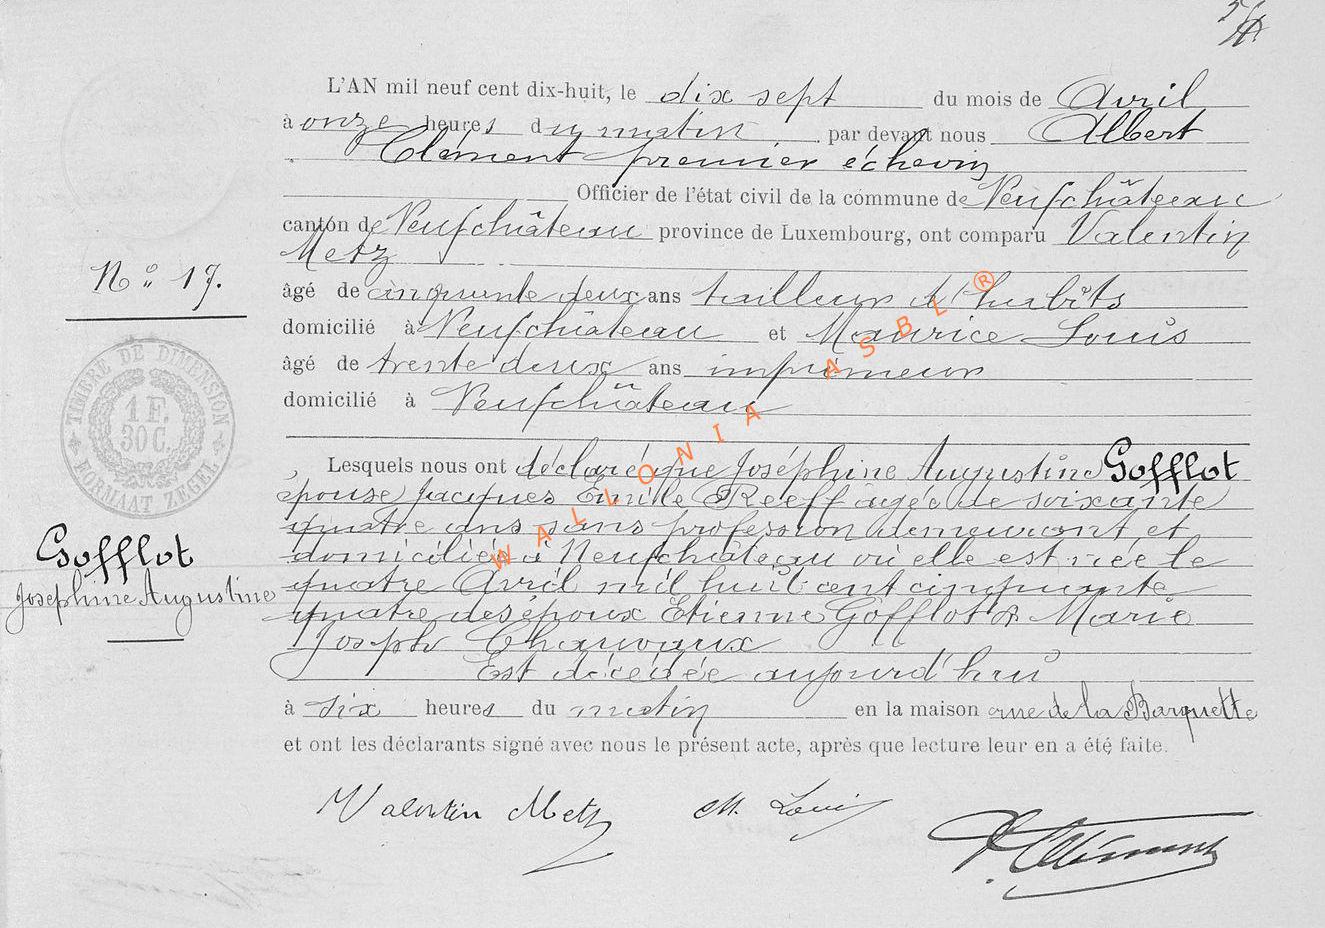 L'AN mil neuf cent dix-huit, le dix sept du mois de Avril
à onze heures du matin par devant nous Albert
Clément premier échevin
Officier de l'état civil de la commune de Neufchâteau
canton de Neufchâteau province de Luxembourg, ont comparu Valentin
Metz
N° 17.
âgé de cinquante deux ans tailleur d'habits
domicilié à Neufchâteau et Maurice Louis
âgé de trente deux ans imprimeur
domicilié à Neufchâteau
TIMBRE DE DIMENSION
1 F.
30 C.
FORMAAT ZEGEL
Lesquels nous ont déclaré que Joséphine Augustine Gofflot
épouse Jacques Emile Reeff âgée de soixante
quatre ans sans profession demeurant et
domiciliée à Neufchâteau où elle est née le
quatre Avril mil huit cent cinquante
quatre des époux Etienne Gofflot & Marie
Joseph Chauvaux
Est décédée aujourd'hui
Gofflot
Joséphine Augustine
à six heures du matin en la maison rue de la Barquette
et ont les déclarants signé avec nous le présent acte, après que lecture leur en a été faite.
Valentin Metz M. Louis Clément
WALLONIA ASBL ®